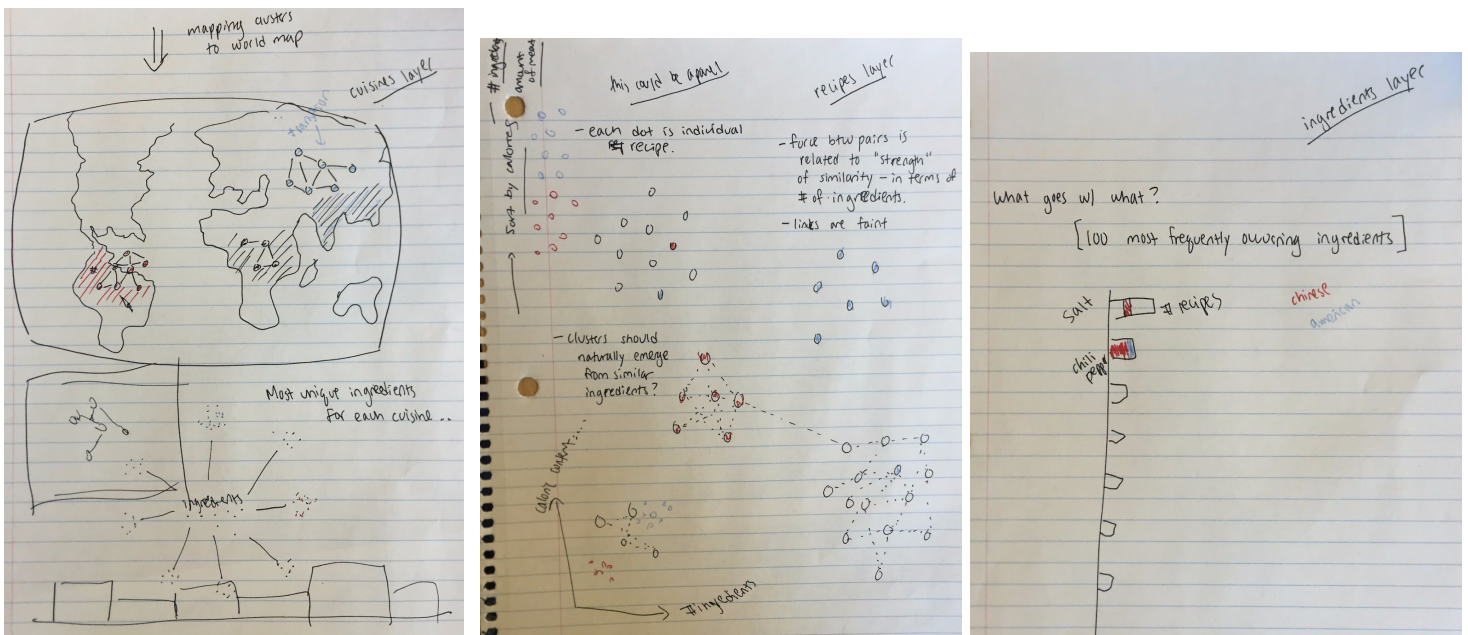 mapping clusters
to world map
cuisines layer
transition
Most unique ingredients
for each cuisine...
ingredients
# ingredients
amount
of meat
sort by calories
this could be a panel
- each dot is individual
recipe.
recipes layer
- force btw pairs is
related to "strength"
of similarity - in terms of
# of ingredients.
- links are faint
- clusters should
naturally emerge
from similar
ingredients?
caloric content...
#ingredients
ingredients layer
What goes w/ what?
[100 most frequently occurring ingredients]
salt
# recipes
chinese
american
chili
pepper